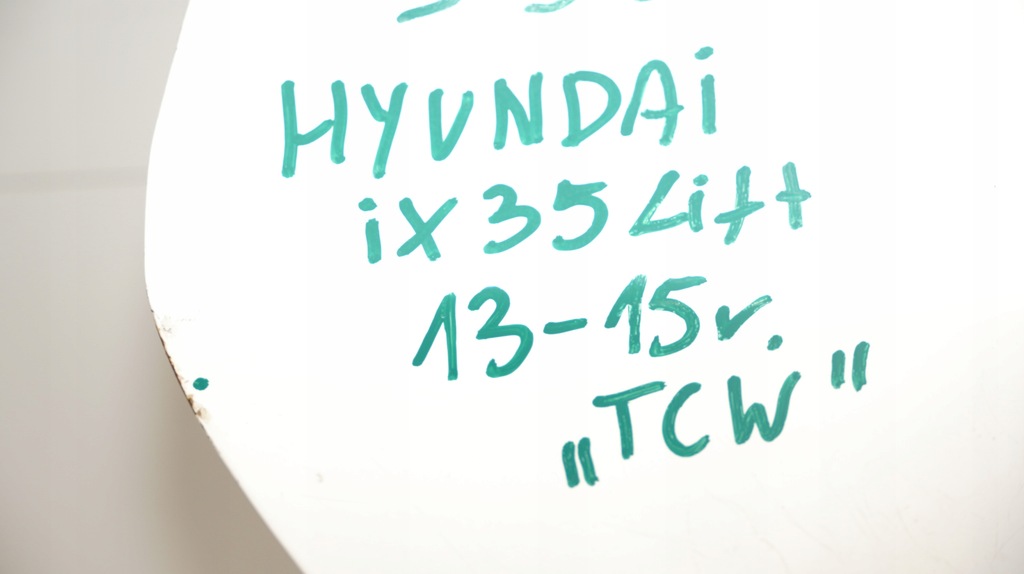 HYUNDAi
iX 35 Lift
13-15r.
„TCW"